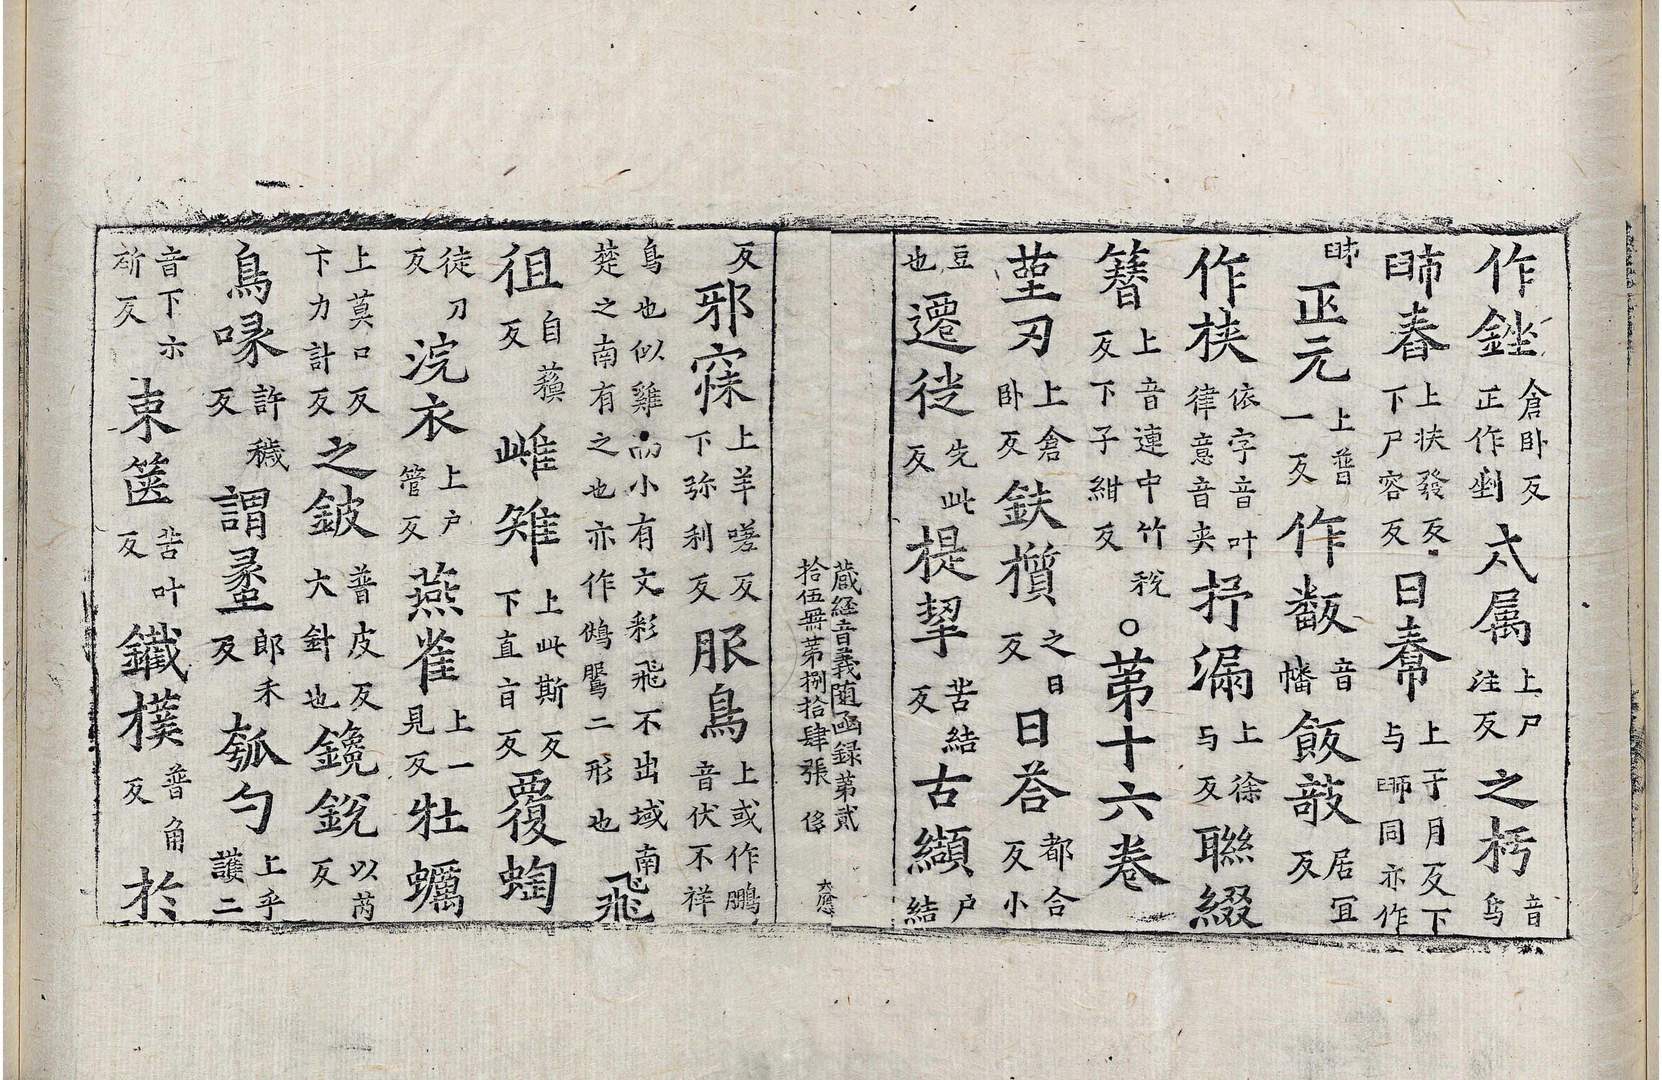 作銼倉卧反正作剉太属上尸注反之杇音烏
𭅺春上扶發反下尸容反曰㡡上于月反下与𭅺同亦作
𭅺正元上普一反作皾音幡飯敲居冝反
作挾依字音叶律意音夹抒漏上徐与反聯綴
簪上音連中竹稅反下子紺反○苐十六卷
莝刃上倉卧反鈇櫍之日反曰荅都合反小
豆也遷徙先此反提挈苦結反古纈户結
藏経音義随函録第貳
拾伍冊苐捌拾肆張 侈
大愈
反邪寐上羊嗟反下弥利反服鳥上或作鵩音伏不祥
鳥也似雞而小有文彩飛不出域南飛
楚之南有之也亦作鵂鶹二形也
徂自蘓反雌雉上此斯反下直盲反覆蜔
徒刀反浣衣上户管反燕雀上一見反牡蠣
上莫口反下力計反之鈹普皮反大針也鑱銳以芮反
鳥喙許穢反謂蠡郎禾反瓠勺上乎護二
音下亦斫反束篋苦叶反鐵樸普角反於